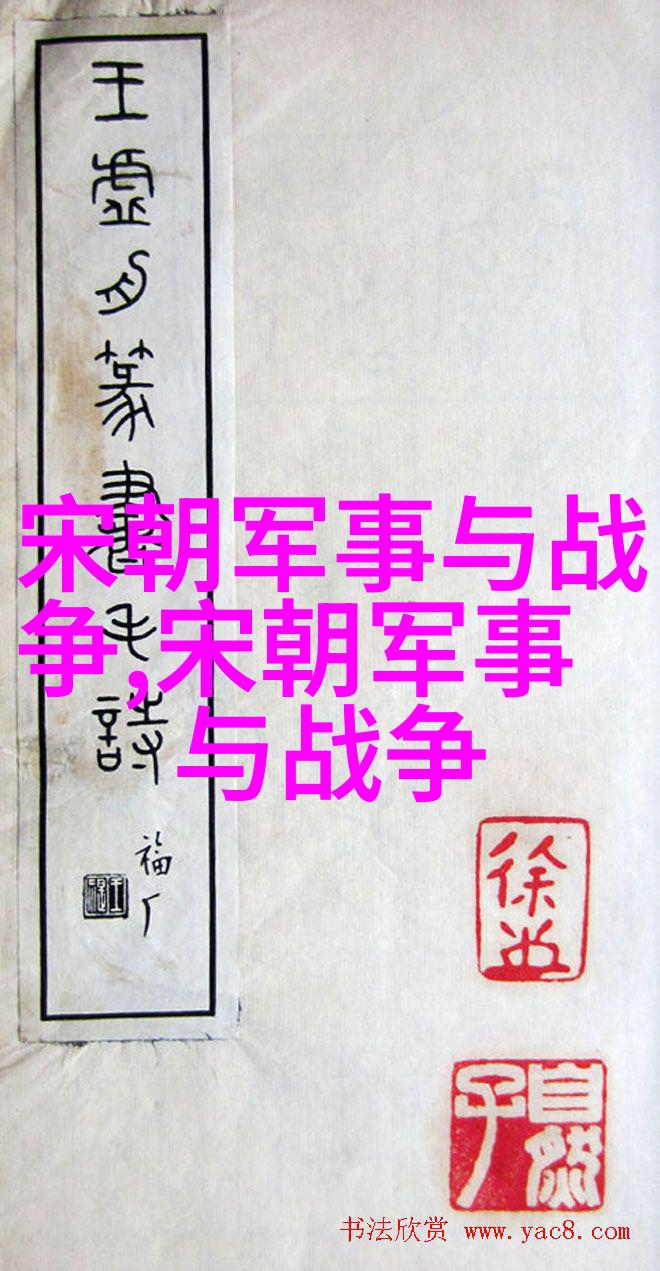 王虛舟篆書毛詩
福厂
宋朝军事与战
争,宋朝军事
与战争
自然子
书法欣赏 www.yac8.com